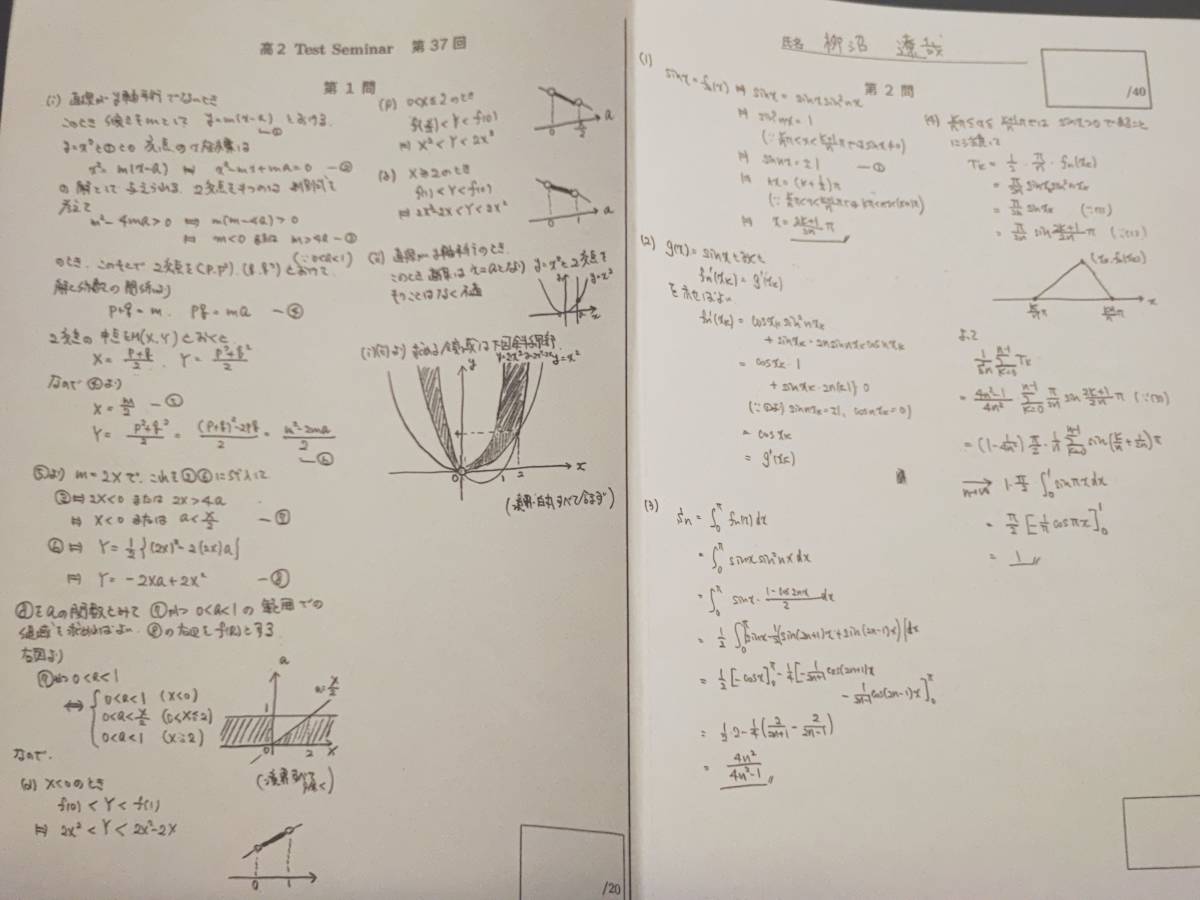 高2 Test Seminar 第37回
第1問
(i) 直線が y軸平行でないとき
このとき 傾きをmとして y=m(x-a) とおける. ―①
y=x²と①との 交点の x座標は
x²=m(x-a) ⇔ x²-mx+ma=0 ―②
の解として与えられる. 2交点をもつのは 判別式を
考えて
m²-4ma>0 ⇔ m(m-4a)>0
⇔ m<0 または m>4a ―③
(∵0<a<1)
のとき. このもとで 2交点を(p,p²), (q,q²)とおけて,
解と係数の関係より
p+q=m, pq=ma ―④
2交点の 中点をM(X,Y)とおくと
X=\frac{p+q}{2}, Y=\frac{p²+q²}{2}
なので ④より
X=\frac{m}{2} ―⑤
Y=\frac{p²+q²}{2}=\frac{(p+q)²-2pq}{2}=\frac{m²-2ma}{2} ―⑥
⑤より m=2Xで, これを③⑥に代入して
③⇔ 2X<0 または 2X>4a
⇔ X<0 または a<\frac{X}{2} ―⑦
⑥⇔ Y=\frac{1}{2}{(2X)²-2(2X)a}
⇔ Y=-2Xa+2X² ―⑧
⑧をaの関数とみて ⑦かつ 0<a<1の 範囲での
値域を求めればよい. ⑧の右辺をf(a)とする
右図より
⑦かつ 0<a<1
⇔ { 0<a<1 (X<0)
0<a<\frac{X}{2} (0<X≦2)
0<a<1 (X≧2)
a
a=\frac{X}{2}
1
0 2 X
(境界全て除く)
なので.
(α) X<0のとき
f(0)<Y<f(1)
⇔ 2X²<Y<2X²-2X
0 1
(β) 0<X≦2のとき
f(\frac{X}{2})<Y<f(0)
⇔ X²<Y<2X²
0 \frac{X}{2} a
(γ) X≧2のとき
f(1)<Y<f(0)
⇔ 2X²-2X<Y<2X²
0 1 a
(ii) 直線が y軸平行のとき,
このとき 直線は x=aとなり y=x²と2交点を
もつことはなく不適
y=x²
x
(i)(ii)より 求める領域は下図斜線部.
y=x²
y
0 1 2 x
(境界・白丸すべて含まず)
/20
氏名 柳沼
/40
第2問
(1)
sinx=fn(x) ⇔ sinx=sinxsin²nx
⇔ sin²nx=1
⇔ sinnx=±1 ―①
⇔ nx=(k+\frac{1}{2})π
⇔ x=\frac{2k+1}{2n}π
(2) g(x)=sinxとおくと
fn'(xk)=g'(xk)
を示せばよい
fn'(xk)=cosxk sin²nxk
+sinxk・2nsinnxkcosnxk
=cosxk・1
+sinxk・2n(±1)・0
(∵①より sinnxk=±1, cosnxk=0)
=cosxk
=g'(xk)
(3) Sn=∫_0^π fn(x)dx
=∫_0^π sinxsin²nxdx
=∫_0^π sinx・\frac{1-cos2nx}{2}dx
=\frac{1}{2}∫_0^π {sinx-\frac{1}{2}(sin(2n+1)x+sin(2n-1)x)}dx
=\frac{1}{2}[-cosx]_0^π-\frac{1}{4}[-\frac{1}{2n+1}cos(2n+1)x
-\frac{1}{2n-1}cos(2n-1)x]_0^π
=\frac{1}{2}・2-\frac{1}{4}(\frac{2}{2n+1}-\frac{2}{2n-1})
=\frac{4n²}{4n²-1}
(4) \frac{k}{n}π≦x≦\frac{k+1}{n}πでは sinx>0であること
に注意して
Tk=\frac{1}{2}・\frac{π}{n}・fn(xk)
=\frac{π}{2n}sinxksin²nxk
=\frac{π}{2n}sinxk (∵(1))
=\frac{π}{2n}sin\frac{2k+1}{2n}π (∵(1))
(xk,fn(xk))
\frac{k}{n}π \frac{k+1}{n}π x
よって
\frac{1}{Sn}\sum_{k=0}^{n-1}Tk
=\frac{4n²-1}{4n²}・\sum_{k=0}^{n-1}\frac{π}{2n}sin\frac{2k+1}{2n}π (∵(3))
=(1-\frac{1}{4n²})\frac{π}{2}・\frac{1}{n}\sum_{k=0}^{n-1}sin(\frac{k}{n}+\frac{1}{2n})π
→(n→∞) 1・\frac{π}{2}∫_0^1 sinπxdx
=\frac{π}{2}[-\frac{1}{π}cosπx]_0^1
=1